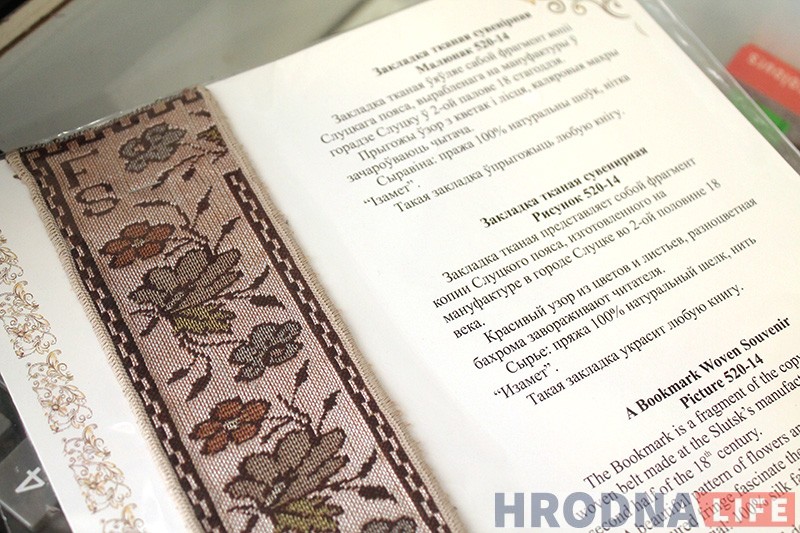 FS
Закладка тканая сувенірная
Малюнак 520-14
Закладка тканая ўяўляе сабой фрагмент копіі
Слуцкага пояса, вырабленага на мануфактуры ў
горадзе Слуцку ў 2-ой палове 18 стагоддзя.
Прыгожы ўзор з кветак і лісця, каляровыя махры
зачароўваюць чытача.
Сыравіна: пряжа 100% натуральны шоўк, нітка
“Ізамет” .
Такая закладка ўпрыгожыць любую кнігу.
Закладка тканая сувенирная
Рисунок 520-14
Закладка тканая представляет собой фрагмент
копии Слуцкого пояса, изготовленного на
мануфактуре в городе Слуцке во 2-ой половине 18
века.
Красивый узор из цветов и листьев, разноцветная
бахрома завораживают читателя.
Сырье: пряжа 100% натуральный шелк, нить
“Изамет” .
Такая закладка украсит любую книгу.
A Bookmark Woven Souvenir
Picture 520-14
The Bookmark is a fragment of the cop
woven belt made at the Slutsk's manufac
second half of the 18th century.
A beautiful pattern of flowers an
fringe fascinate th
100%
HRODNA LIFE